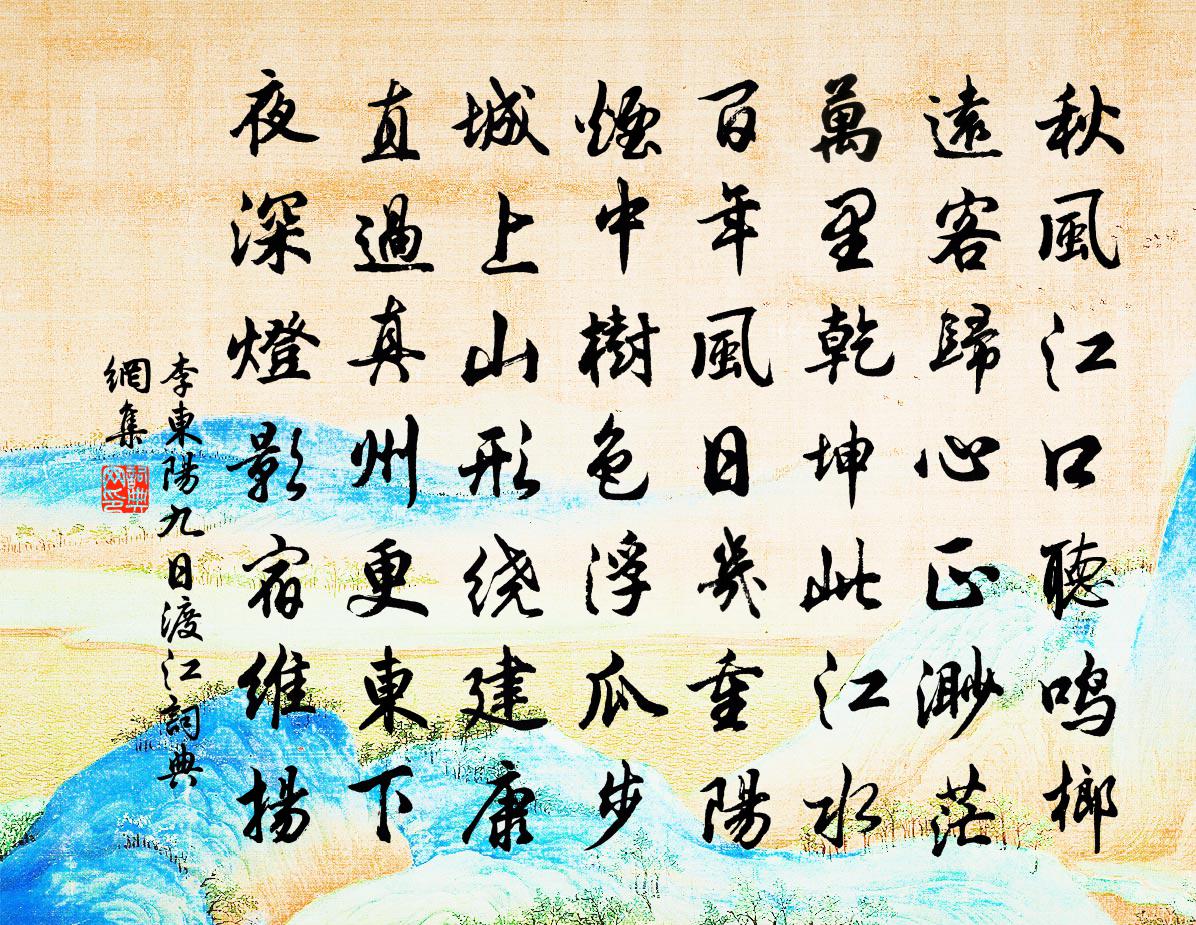 秋風江口聽鸣榔
遠客歸心正渺茫
萬里乾坤此江水
百年風日幾重陽
煙中樹色浮瓜步
城上山形绕建康
直過真州更東下
夜深燈影宿維揚
李東陽九日渡江詞典
網集